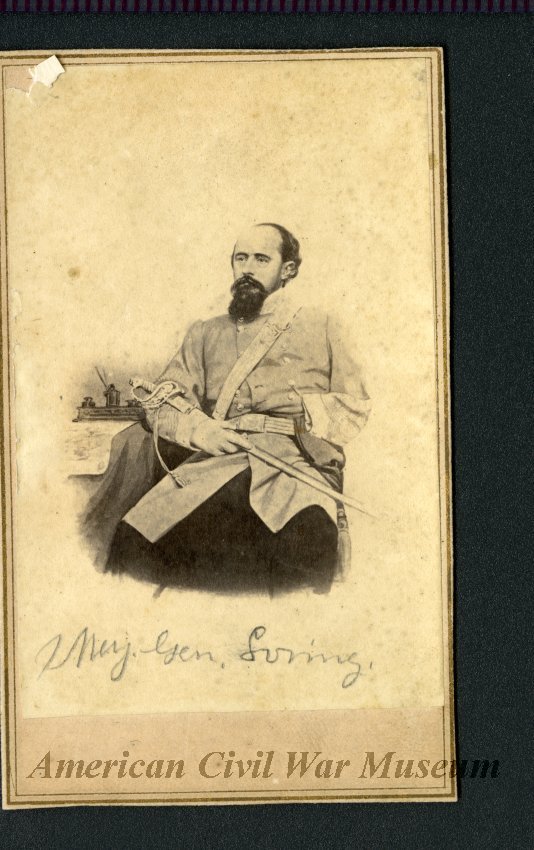 Maj. Gen. Loring.
American Civil War Museum